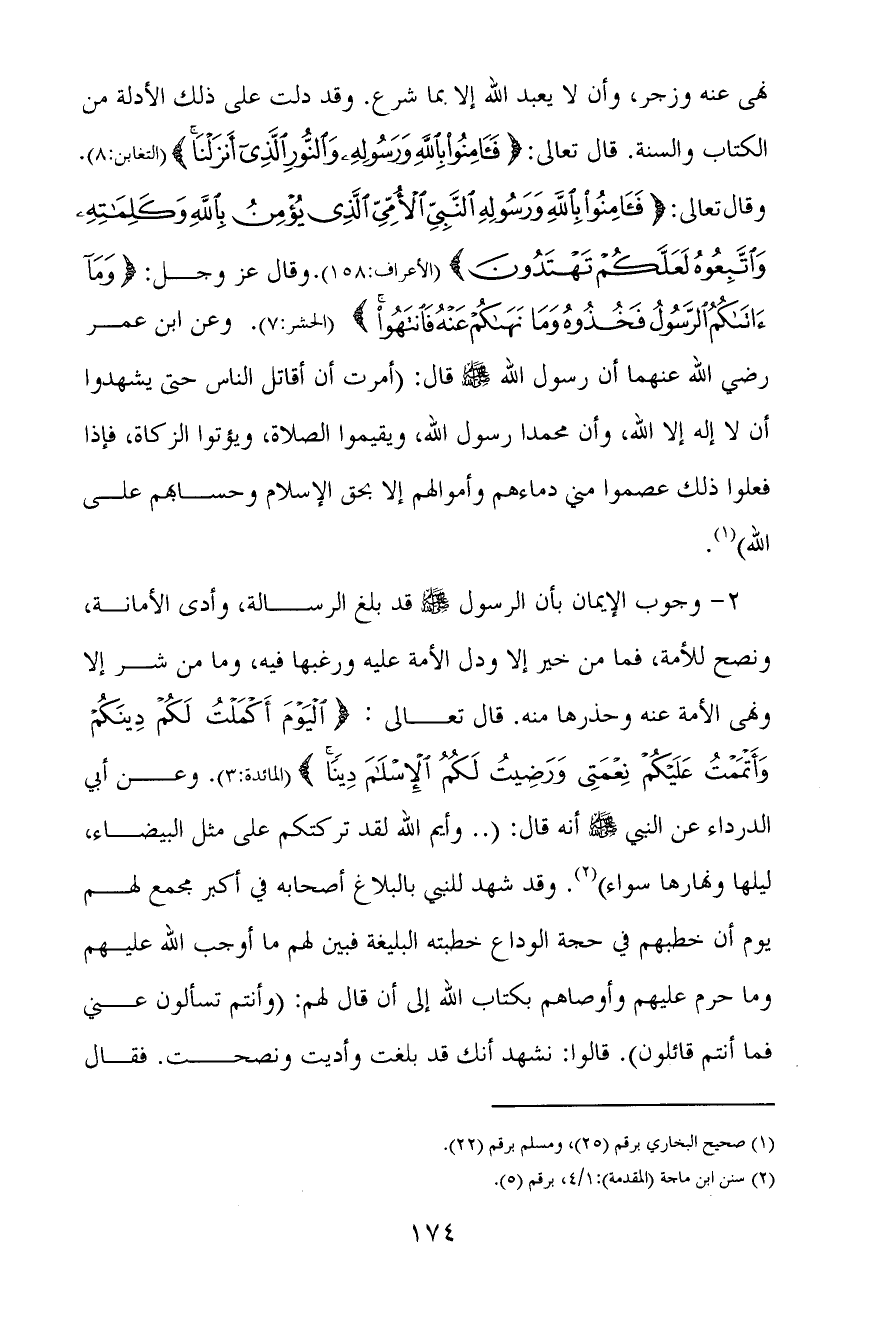 نهى عنه وزجر، وأن لا يعبد الله إلا بما شرع. وقد دلت على ذلك الأدلة من
الكتاب والسنة. قال تعالى: ﴿ فَـَٔامِنُوا۟ بِٱللَّهِ وَرَسُولِهِۦ وَٱلنُّورِ ٱلَّذِىٓ أَنزَلْنَا ۚ ﴾ (التغابن:٨).
وقال تعالى: ﴿ فَـَٔامِنُوا۟ بِٱللَّهِ وَرَسُولِهِ ٱلنَّبِىِّ ٱلْأُمِّىِّ ٱلَّذِى يُؤْمِنُ بِٱللَّهِ وَكَلِمَـٰتِهِۦ
وَٱتَّبِعُوهُ لَعَلَّكُمْ تَهْتَدُونَ ﴾ (الأعراف:١٥٨). وقال عز وجل: ﴿ وَمَآ
ءَاتَىٰكُمُ ٱلرَّسُولُ فَخُذُوهُ وَمَا نَهَىٰكُمْ عَنْهُ فَٱنتَهُوا۟ ۚ ﴾ (الحشر:٧). وعن ابن عمر
رضي الله عنهما أن رسول الله ﷺ قال: (أمرت أن أقاتل الناس حتى يشهدوا
أن لا إله إلا الله، وأن محمدا رسول الله، ويقيموا الصلاة، ويؤتوا الزكاة، فإذا
فعلوا ذلك عصموا مني دماءهم وأموالهم إلا بحق الإسلام وحسابهم على
الله)(١).
٢- وجوب الإيمان بأن الرسول ﷺ قد بلغ الرسالة، وأدى الأمانة،
ونصح للأمة، فما من خير إلا ودل الأمة عليه ورغبها فيه، وما من شر إلا
ونهى الأمة عنه وحذرها منه. قال تعالى : ﴿ ٱلْيَوْمَ أَكْمَلْتُ لَكُمْ دِينَكُمْ
وَأَتْمَمْتُ عَلَيْكُمْ نِعْمَتِى وَرَضِيتُ لَكُمُ ٱلْإِسْلَـٰمَ دِينًا ۚ ﴾ (المائدة:٣). وعن أبي
الدرداء عن النبي ﷺ أنه قال: (.. وأيم الله لقد تركتكم على مثل البيضاء،
ليلها ونهارها سواء)(٢). وقد شهد للنبي بالبلاغ أصحابه في أكبر مجمع لهم
يوم أن خطبهم في حجة الوداع خطبته البليغة فبين لهم ما أوجب الله عليهم
وما حرم عليهم وأوصاهم بكتاب الله إلى أن قال لهم: (وأنتم تسألون عني
فما أنتم قائلون). قالوا: نشهد أنك قد بلغت وأديت ونصحت. فقال
(١) صحيح البخاري برقم (٢٥)، ومسلم برقم (٢٢).
(٢) سنن ابن ماجة (المقدمة):٤/١، برقم (٥).
١٧٤